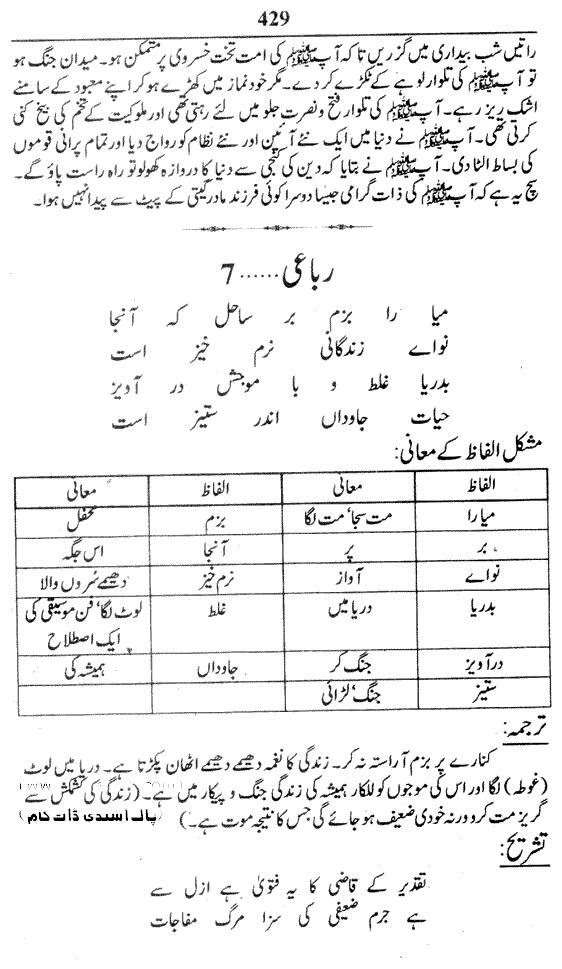 429
راتیں شب بیداری میں گزریں تاکہ آپ ﷺ کی امت تخت خسروی پر متمکن ہو۔ میدان جنگ ہو
تو آپ ﷺ کی تلوار لوہے کے ٹکڑے کر دے۔ مگر خود نماز میں کھڑے ہو کر اپنے معبود کے سامنے
اشک ریز رہے۔ آپ ﷺ کی تلوار فتح و نصرت جلو میں لئے رہتی تھی اور ملوکیت کے تخم کی بیخ کنی
کرتی تھی۔ آپ ﷺ نے دنیا میں ایک نئے آئین اور نئے نظام کو رواج دیا اور تمام پرانی قوموں
کی بساط الٹا دی۔ آپ ﷺ نے بتایا کہ دین کی کنجی سے دنیا کا دروازہ کھولو تو راہ راست پاؤ گے۔
سچ یہ ہے کہ آپ ﷺ کی ذات گرامی جیسا دوسرا کوئی فرزند مادر گیتی کے پیٹ سے پیدا نہیں ہوا۔
رباعی ...... 7
میا را بزم بر ساحل کہ آنجا
نواے زندگانی نرم خیز است
بدریا غلط و با موجش در آویز
حیات جاوداں اندر ستیز است
مشکل الفاظ کے معانی:
الفاظ معانی الفاظ معانی
میا را مت سجا‘ مت لگا بزم محفل
بر پر آنجا اس جگہ
نواے آواز نرم خیز دھیمے سُروں والا
بدریا دریا میں غلط لوٹ لگا‘ فن موسیقی کی
ایک اصطلاح
در آویز جنگ کر جاوداں ہمیشہ کی
ستیز جنگ‘ لڑائی
ترجمہ:
کنارے پر بزم آراستہ نہ کر۔ زندگی کا نغمہ دھیمے دھیمے اٹھان پکڑتا ہے۔ دریا میں لوٹ
(غوطہ) لگا اور اس کی موجوں کو للکار ہمیشہ کی زندگی جنگ و پیکار میں ہے۔ (زندگی کی کشمکش سے
گریز مت کرو ورنہ خودی ضعیف ہو جائے گی جس کا نتیجہ موت ہے۔) (پاک اسٹڈی ڈاٹ کام)
تشریح:
تقدیر کے قاضی کا یہ فتویٰ ہے ازل سے
ہے جرم ضعیفی کی سزا مرگ مفاجات